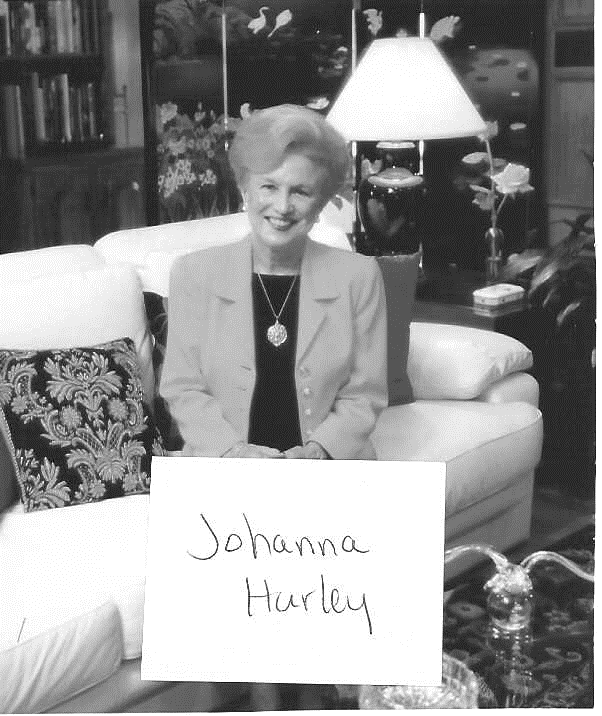 Johanna
Hurley